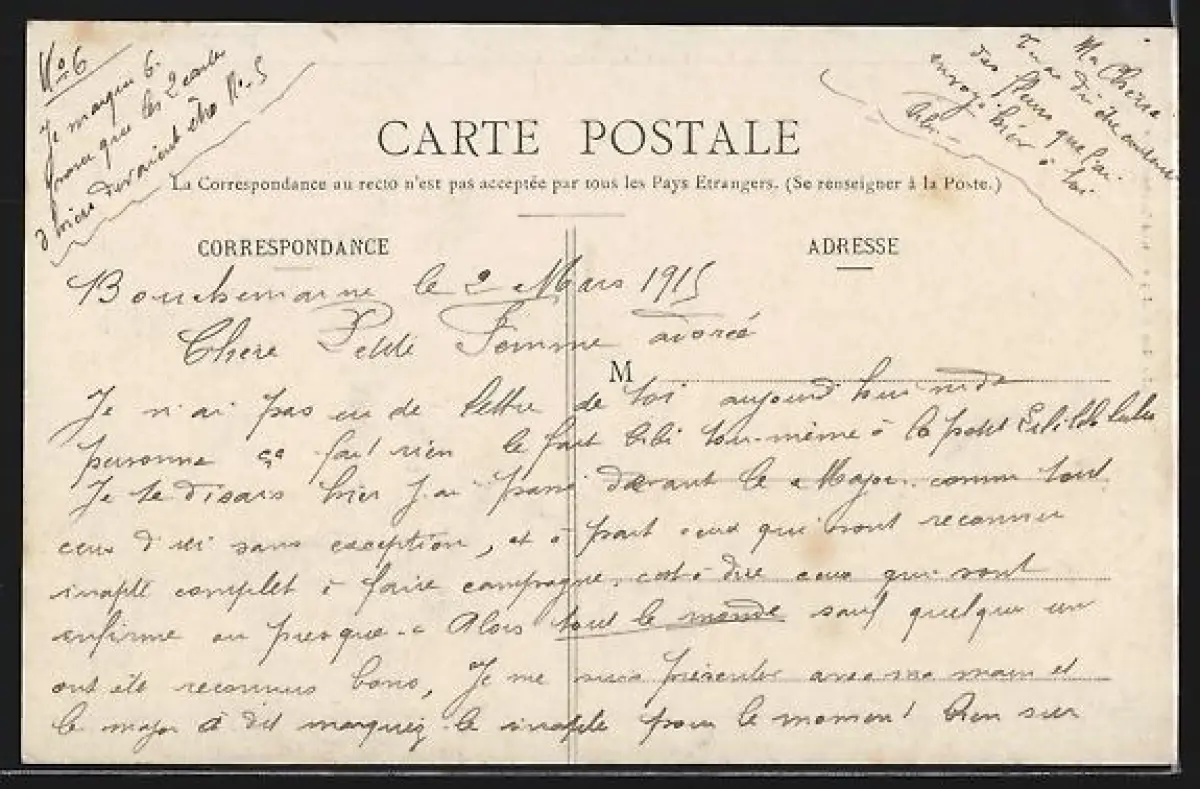 No 6
Je marque 6.
parce que les 2 cartes
d'hier devraient être No 5
Ma Chérie
des fleurs que j'ai
envoyé hier à toi
CARTE POSTALE
La Correspondance au recto n'est pas acceptée par tous les Pays Etrangers. (Se renseigner à la Poste.)
CORRESPONDANCE
ADRESSE
Bouchemaine le 2 Mars 1915
Chere Petite Femme adorée
M
Je n'ai pas eu de lettre de toi aujourd'hui ni de
personne ça fait rien le fait bibi lui-même à la petit
Je te disais hier j'ai passé devant le Major. comme tout
ceux d'ici sans exception, et à part ceux qui sont reconnu
inapte complet à faire campagne, cest à dire ceux qui sont
enfirme ou presque. Alors tout le monde sauf quelqu'un
ont été reconnus bons, Je me suis présenter avec ma main et
le major à dit marquez le inapte pour le moment bien sur